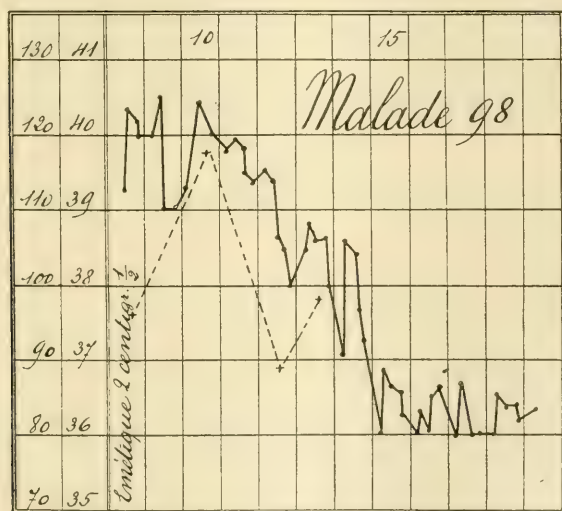 10 15
130 41
Malade 98
120 40
110 39
100 38
90 37
80 36
70 35
Emétique 2 centigr. 1/2